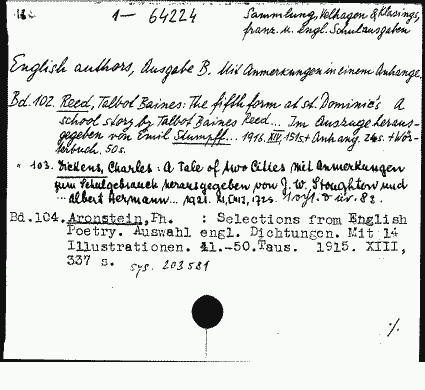 1— 64224
Sammlung, Velhagen & Klasings,
franz. u. engl. Schulausgaben
English authors, Ausgabe B. Mit Anmerkungen in einem Anhange.
Bd. 102. Reed, Talbot Baines: The fifth form at st. Dominic's A
school story by Talbot Baines Reed... Im Auszuge heraus-
gegeben von Emil Stumpff... 1916. XIV, 151 s + Anhang. 24 s. + Wör-
terbuch. 50 s.
" 103. Dickens, Charles: A Tale of two Cities mit Anmerkungen
zum Schulgebrauch herausgegeben von J. W. Stoughton und
... Albert Hermann... 1921.
Bd.104. Aronstein, Ph. : Selections from English
Poetry. Auswahl engl. Dichtungen. Mit 14
Illustrationen. 41.-50.Taus. 1915. XIII,
337 s.
sys. 203581